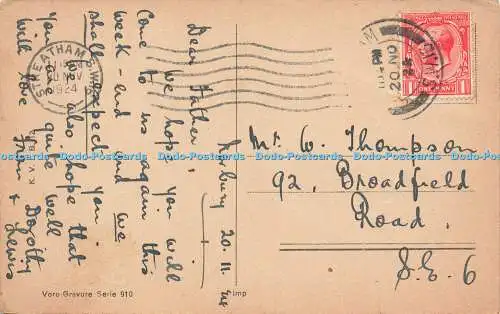 Asbury 20.11.24
Dear Father
we hope you will
come to us again this
week-end and we
shall expect you.
We also hope that
you are quite well
with love
from Dorothy
& Lewis
Mr W. Thompson
92, Broadfield
Road.
S.E. 6
STREATHAM S.W.16
20 NOV
1924
20 NO
24
ONE PENNY
1 1
Voro-Gravure Serie 910
Imp
Dodo-Postcards